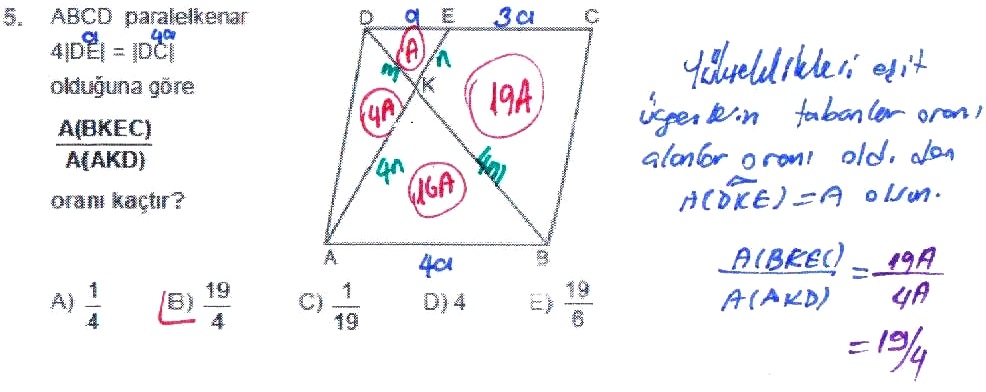 5. ABCD paralelkenar
a 4a
4|DE| = |DC|
olduğuna göre
A(BKEC)
A(AKD)
oranı kaçtır?
D a E 3a C
A
m n
K
4A
19A
4n
16A
4m
A 4a B
A) 1/4 B) 19/4 C) 1/19 D) 4 E) 19/6
Yükseklikleri eşit
üçgenlerin tabanlar oranı
alanlar oranı old. dan
A(DKE) = A olsun.
A(BKEC) = 19A
A(AKD) 4A
= 19/4